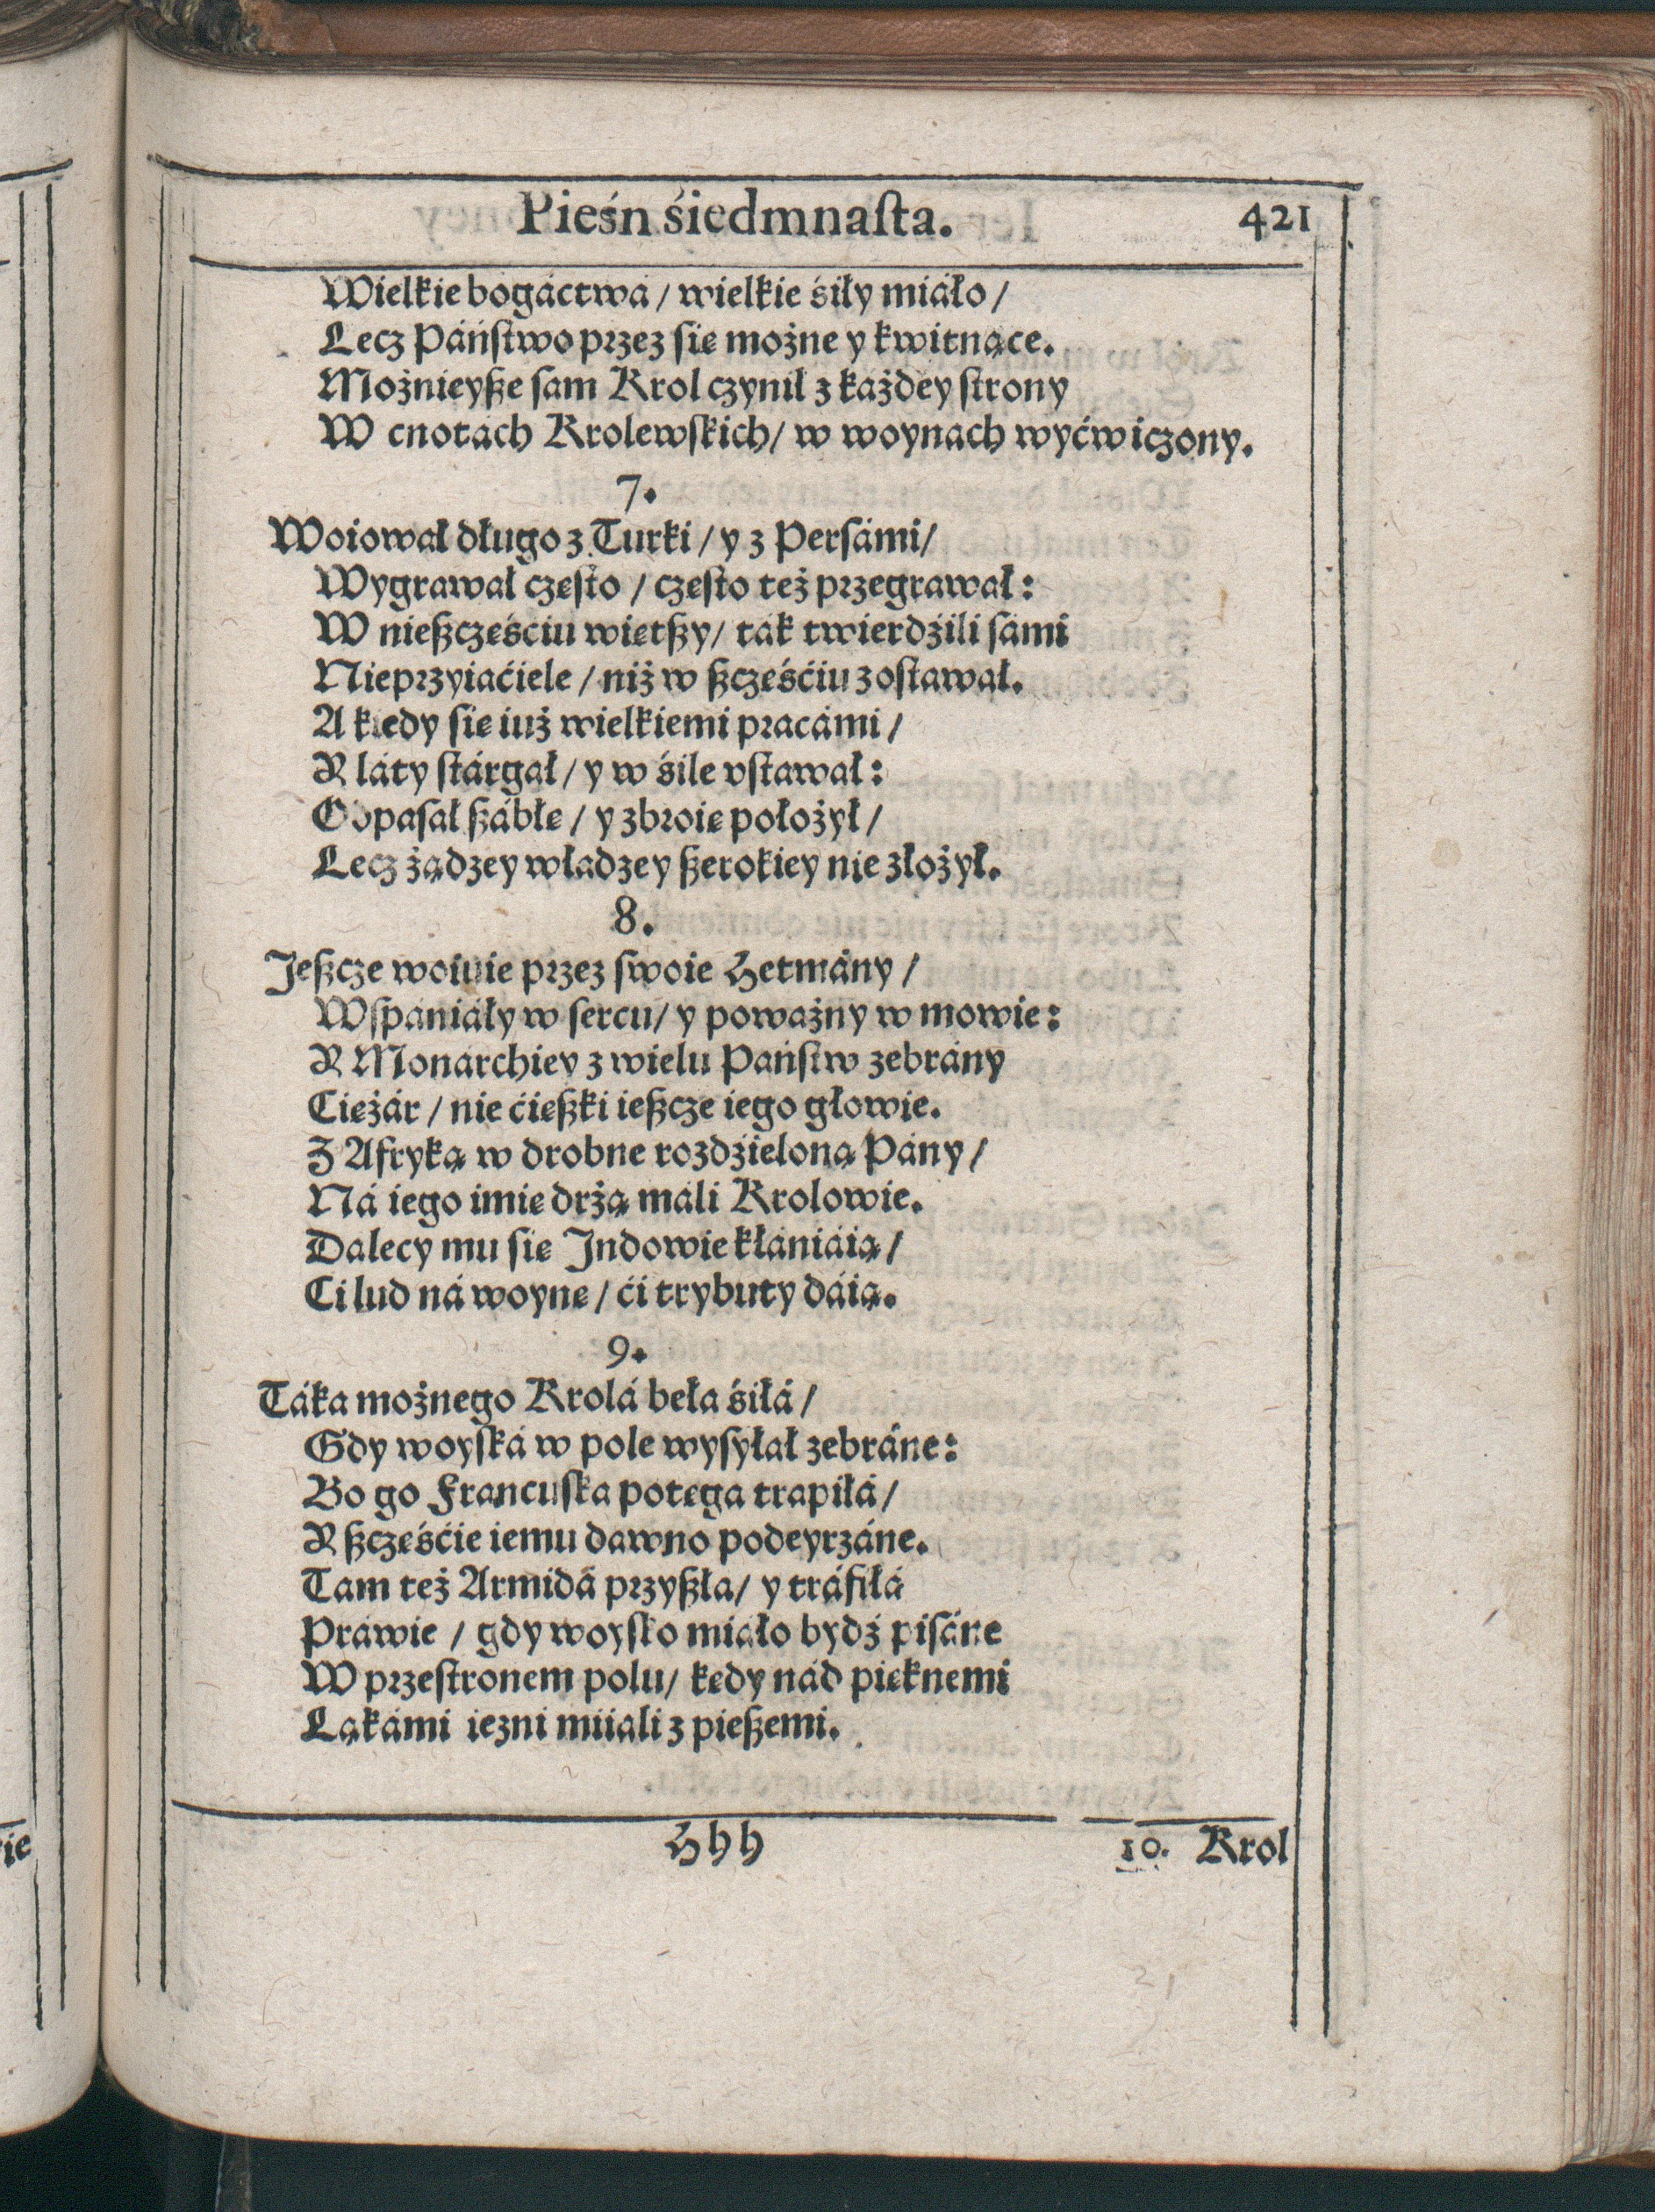 Pieśń śiedmnaſta. 421
Wielkie bogáctwá / wielkie śiły miáło /
Lecz Páńſtwo przez ſię możne y kwitnące.
Możnieyße ſam Krol czynił z każdey ſtrony
W cnotach Krolewſkich / w woynach wyćwiczony.
7.
Woiował długo z Turki / y z Perſámi /
Wygrawał częſto / częſto też przegrawał:
W nießczęśćiu więtßy / ták twierdźili ſámi
Nieprzyiaćiele / niż w ßczęśćiu zoſtawał.
A kiedy ſię iuż wielkiemi pracámi /
Y láty ſtárgał / y w śile vſtawał:
Odpaſał ßáblę / y zbroię położył /
Lecz żądzey władzey ßerokiey nie złożył.
8.
Jeßcze woiuie przez ſwoie Hetmány /
Wſpániáły w ſercu / y poważny w mowie:
Y Monárchiey z wielu Páńſtw zebrány
Ciężár / nie ćięßki ießcze iego głowie.
Z Afryką w drobne rozdźieloną Pány /
Ná iego imię drżą máli Krolowie.
Dalecy mu ſię Jndowie kłániáią /
Ci lud ná woynę / ći trybuty dáią.
9.
Táka możnego Krolá beła śiłá /
Gdy woyſká w pole wysyłał zebráne:
Bo go Francuſka potęga trapiłá /
Y ßczęśćie iemu dawno podeyrzáne.
Tam też Armidá przyßła / y tráfiłá
Práwie / gdy woyſko miáło bydź piſáne
W przeſtronem polu / kędy nád pięknemi
Łąkámi iezni miiali z pießemi.
Hhh 10. Krol